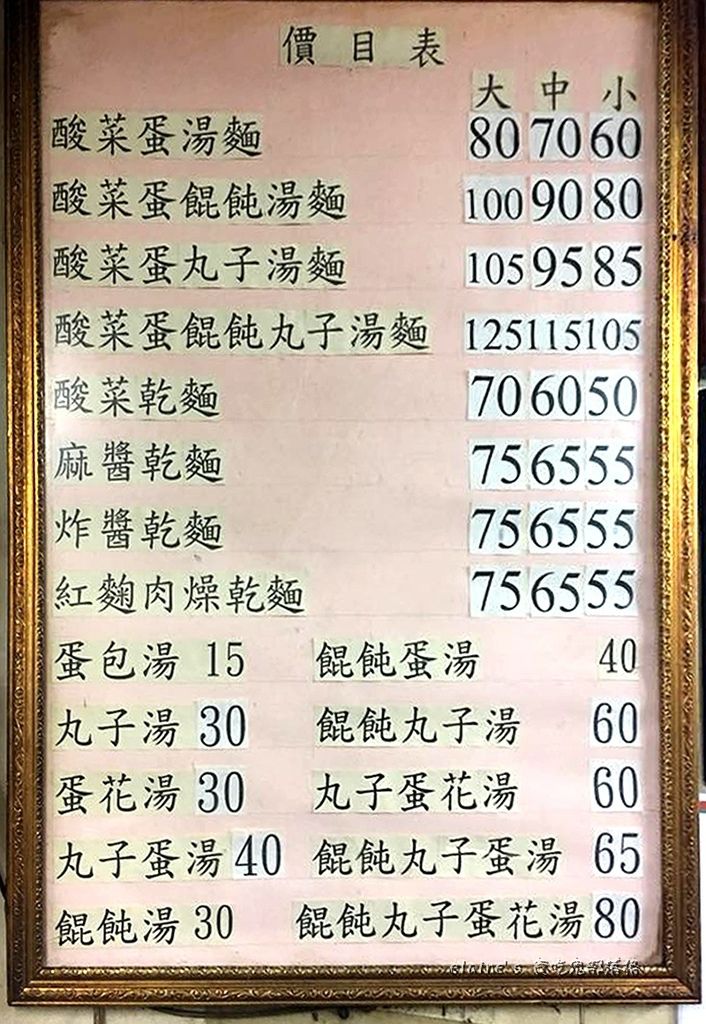 價目表
大 中 小
酸菜蛋湯麵 80 70 60
酸菜蛋餛飩湯麵 100 90 80
酸菜蛋丸子湯麵 105 95 85
酸菜蛋餛飩丸子湯麵 125 115 105
酸菜乾麵 70 60 50
麻醬乾麵 75 65 55
炸醬乾麵 75 65 55
紅麴肉燥乾麵 75 65 55
蛋包湯 15 餛飩蛋湯 40
丸子湯 30 餛飩丸子湯 60
蛋花湯 30 丸子蛋花湯 60
丸子蛋湯 40 餛飩丸子蛋湯 65
餛飩湯 30 餛飩丸子蛋花湯 80